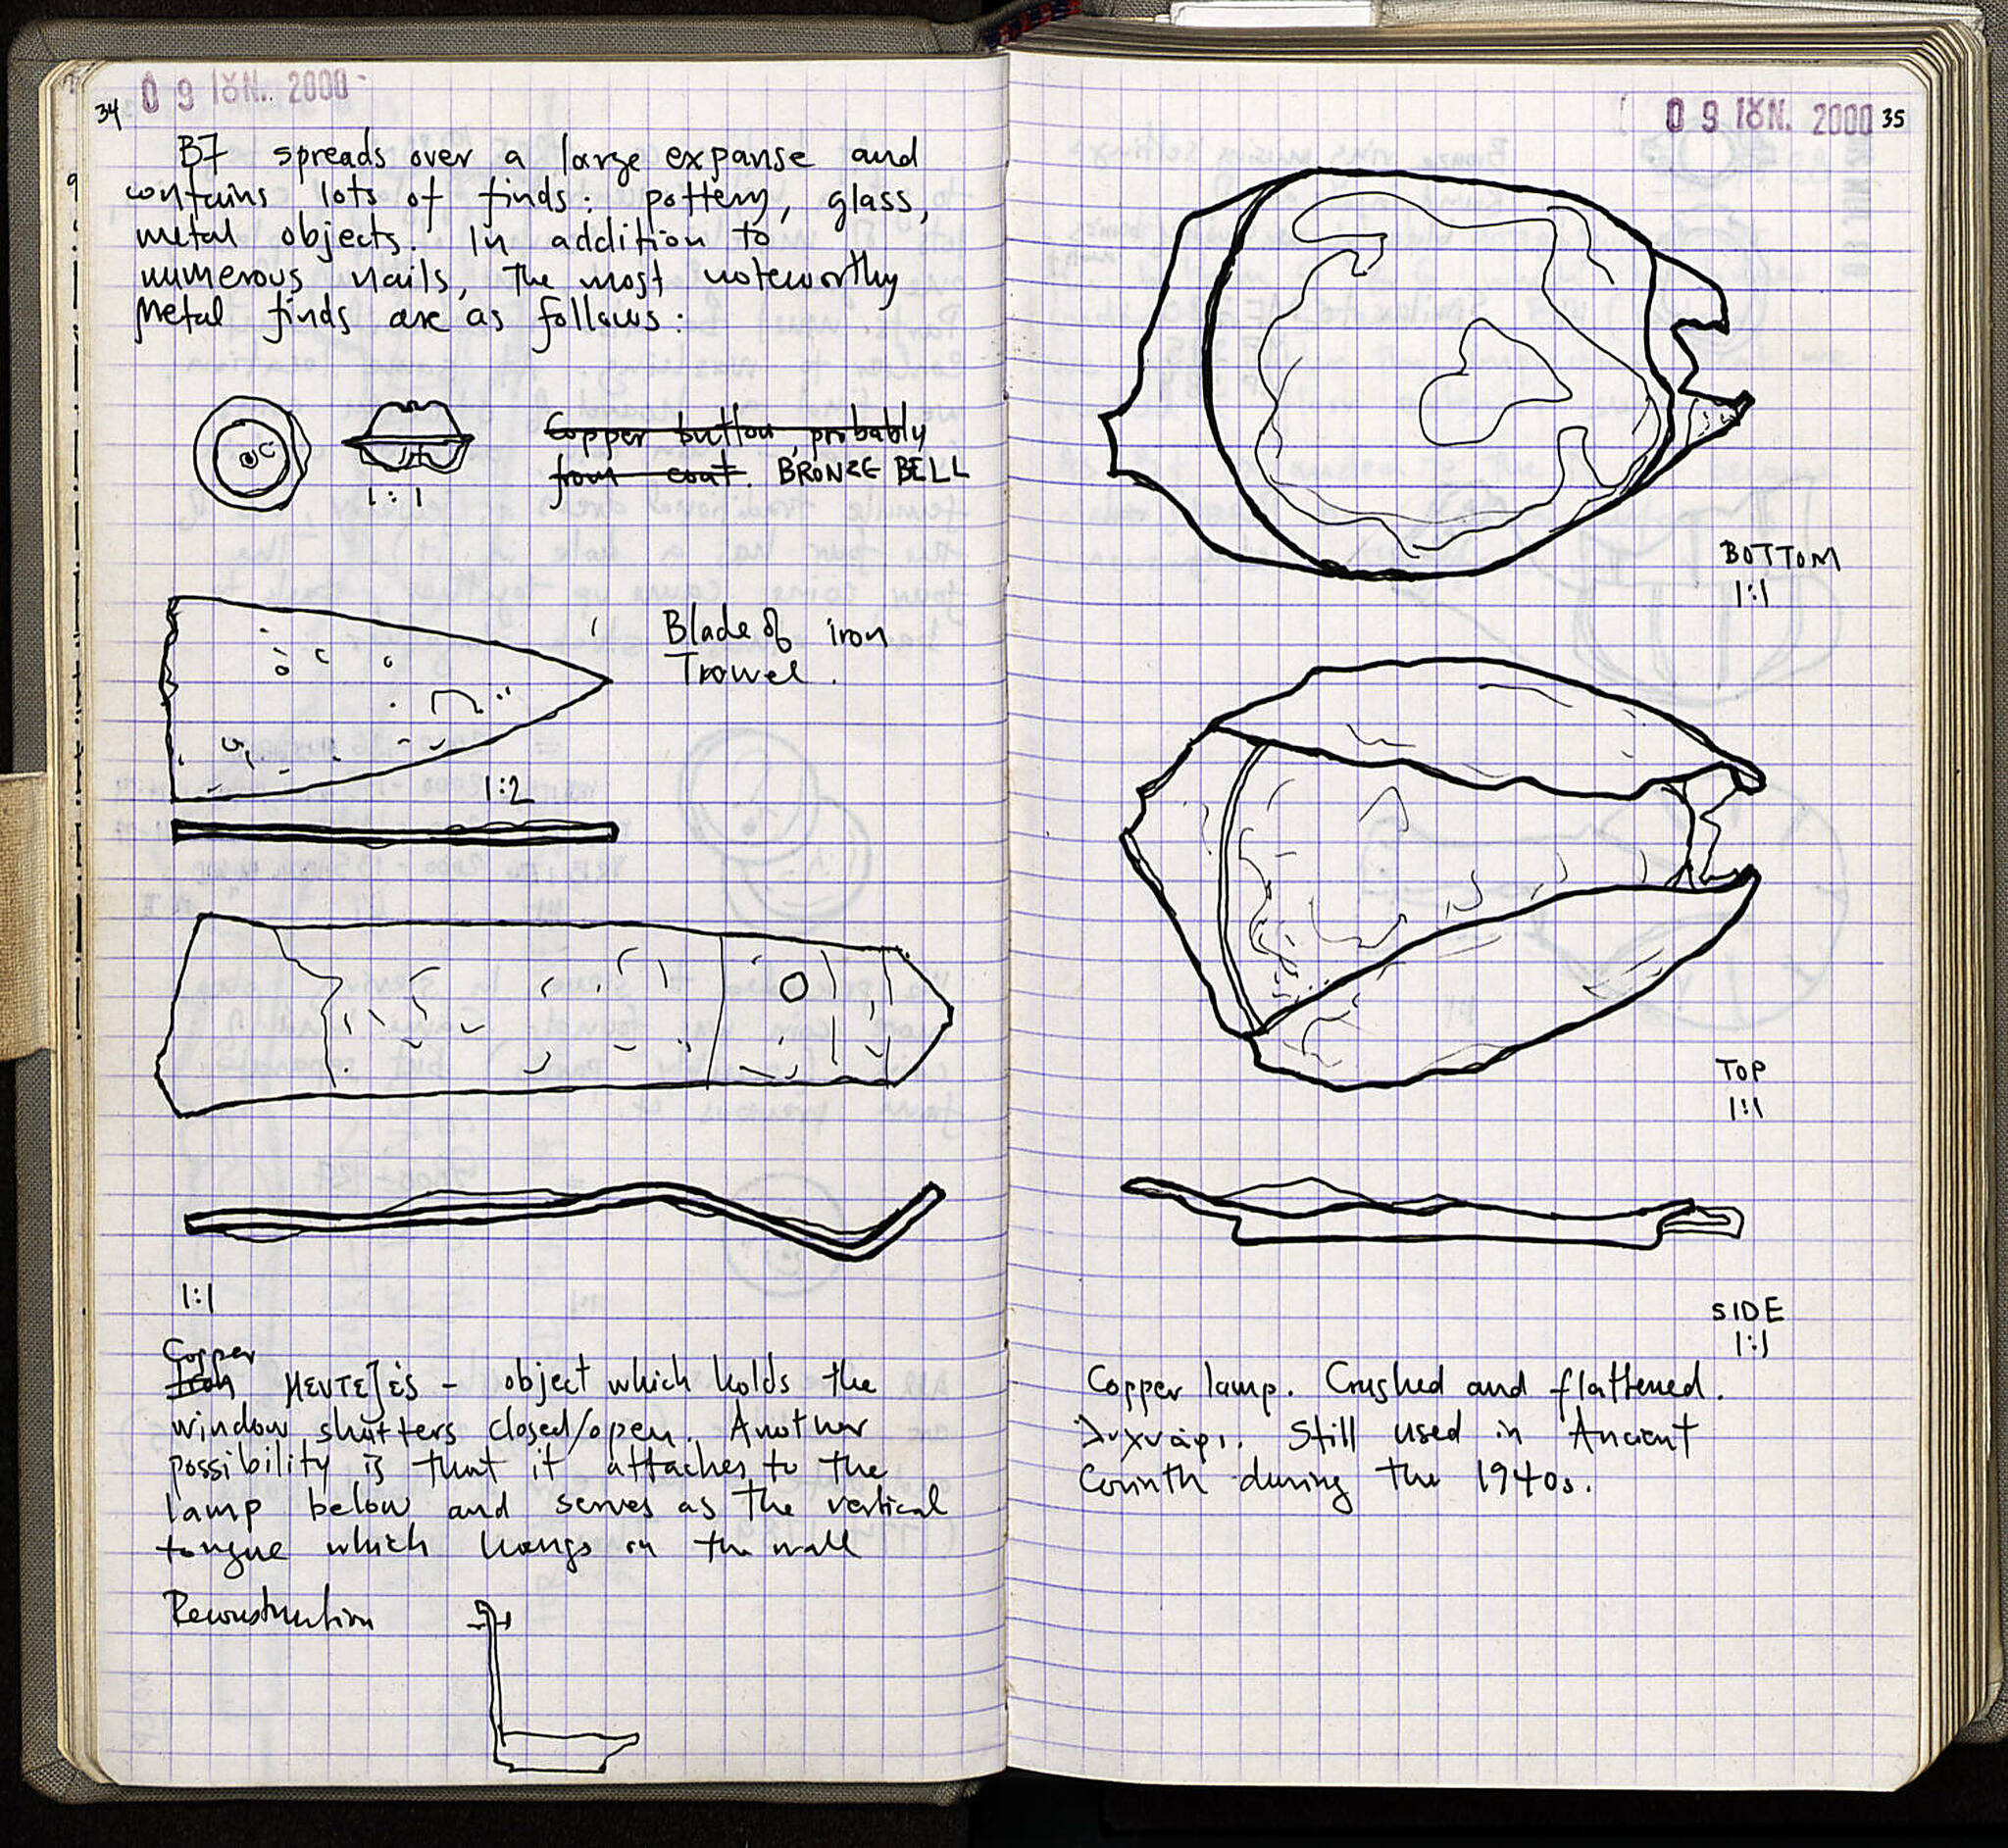 34
0 9 ΙΟΥΝ. 2000
B7 spreads over a large expanse and
contains lots of finds: pottery, glass,
metal objects. In addition to
numerous nails, the most noteworthy
metal finds are as follows:
Copper button, probably
from coat. BRONZE BELL
1:1
Blade of iron
Trowel.
1:2
1:1
Copper
Iron μεντεζές - object which holds the
window shutters closed/open. Another
possibility is that it attaches to the
lamp below and serves as the vertical
tongue which hangs on the wall
Reconstruction
0 9 ΙΟΥΝ. 2000
35
BOTTOM
1:1
TOP
1:1
SIDE
1:1
Copper lamp. Crushed and flattened.
λυχνάρι. Still used in Ancient
Corinth during the 1940s.